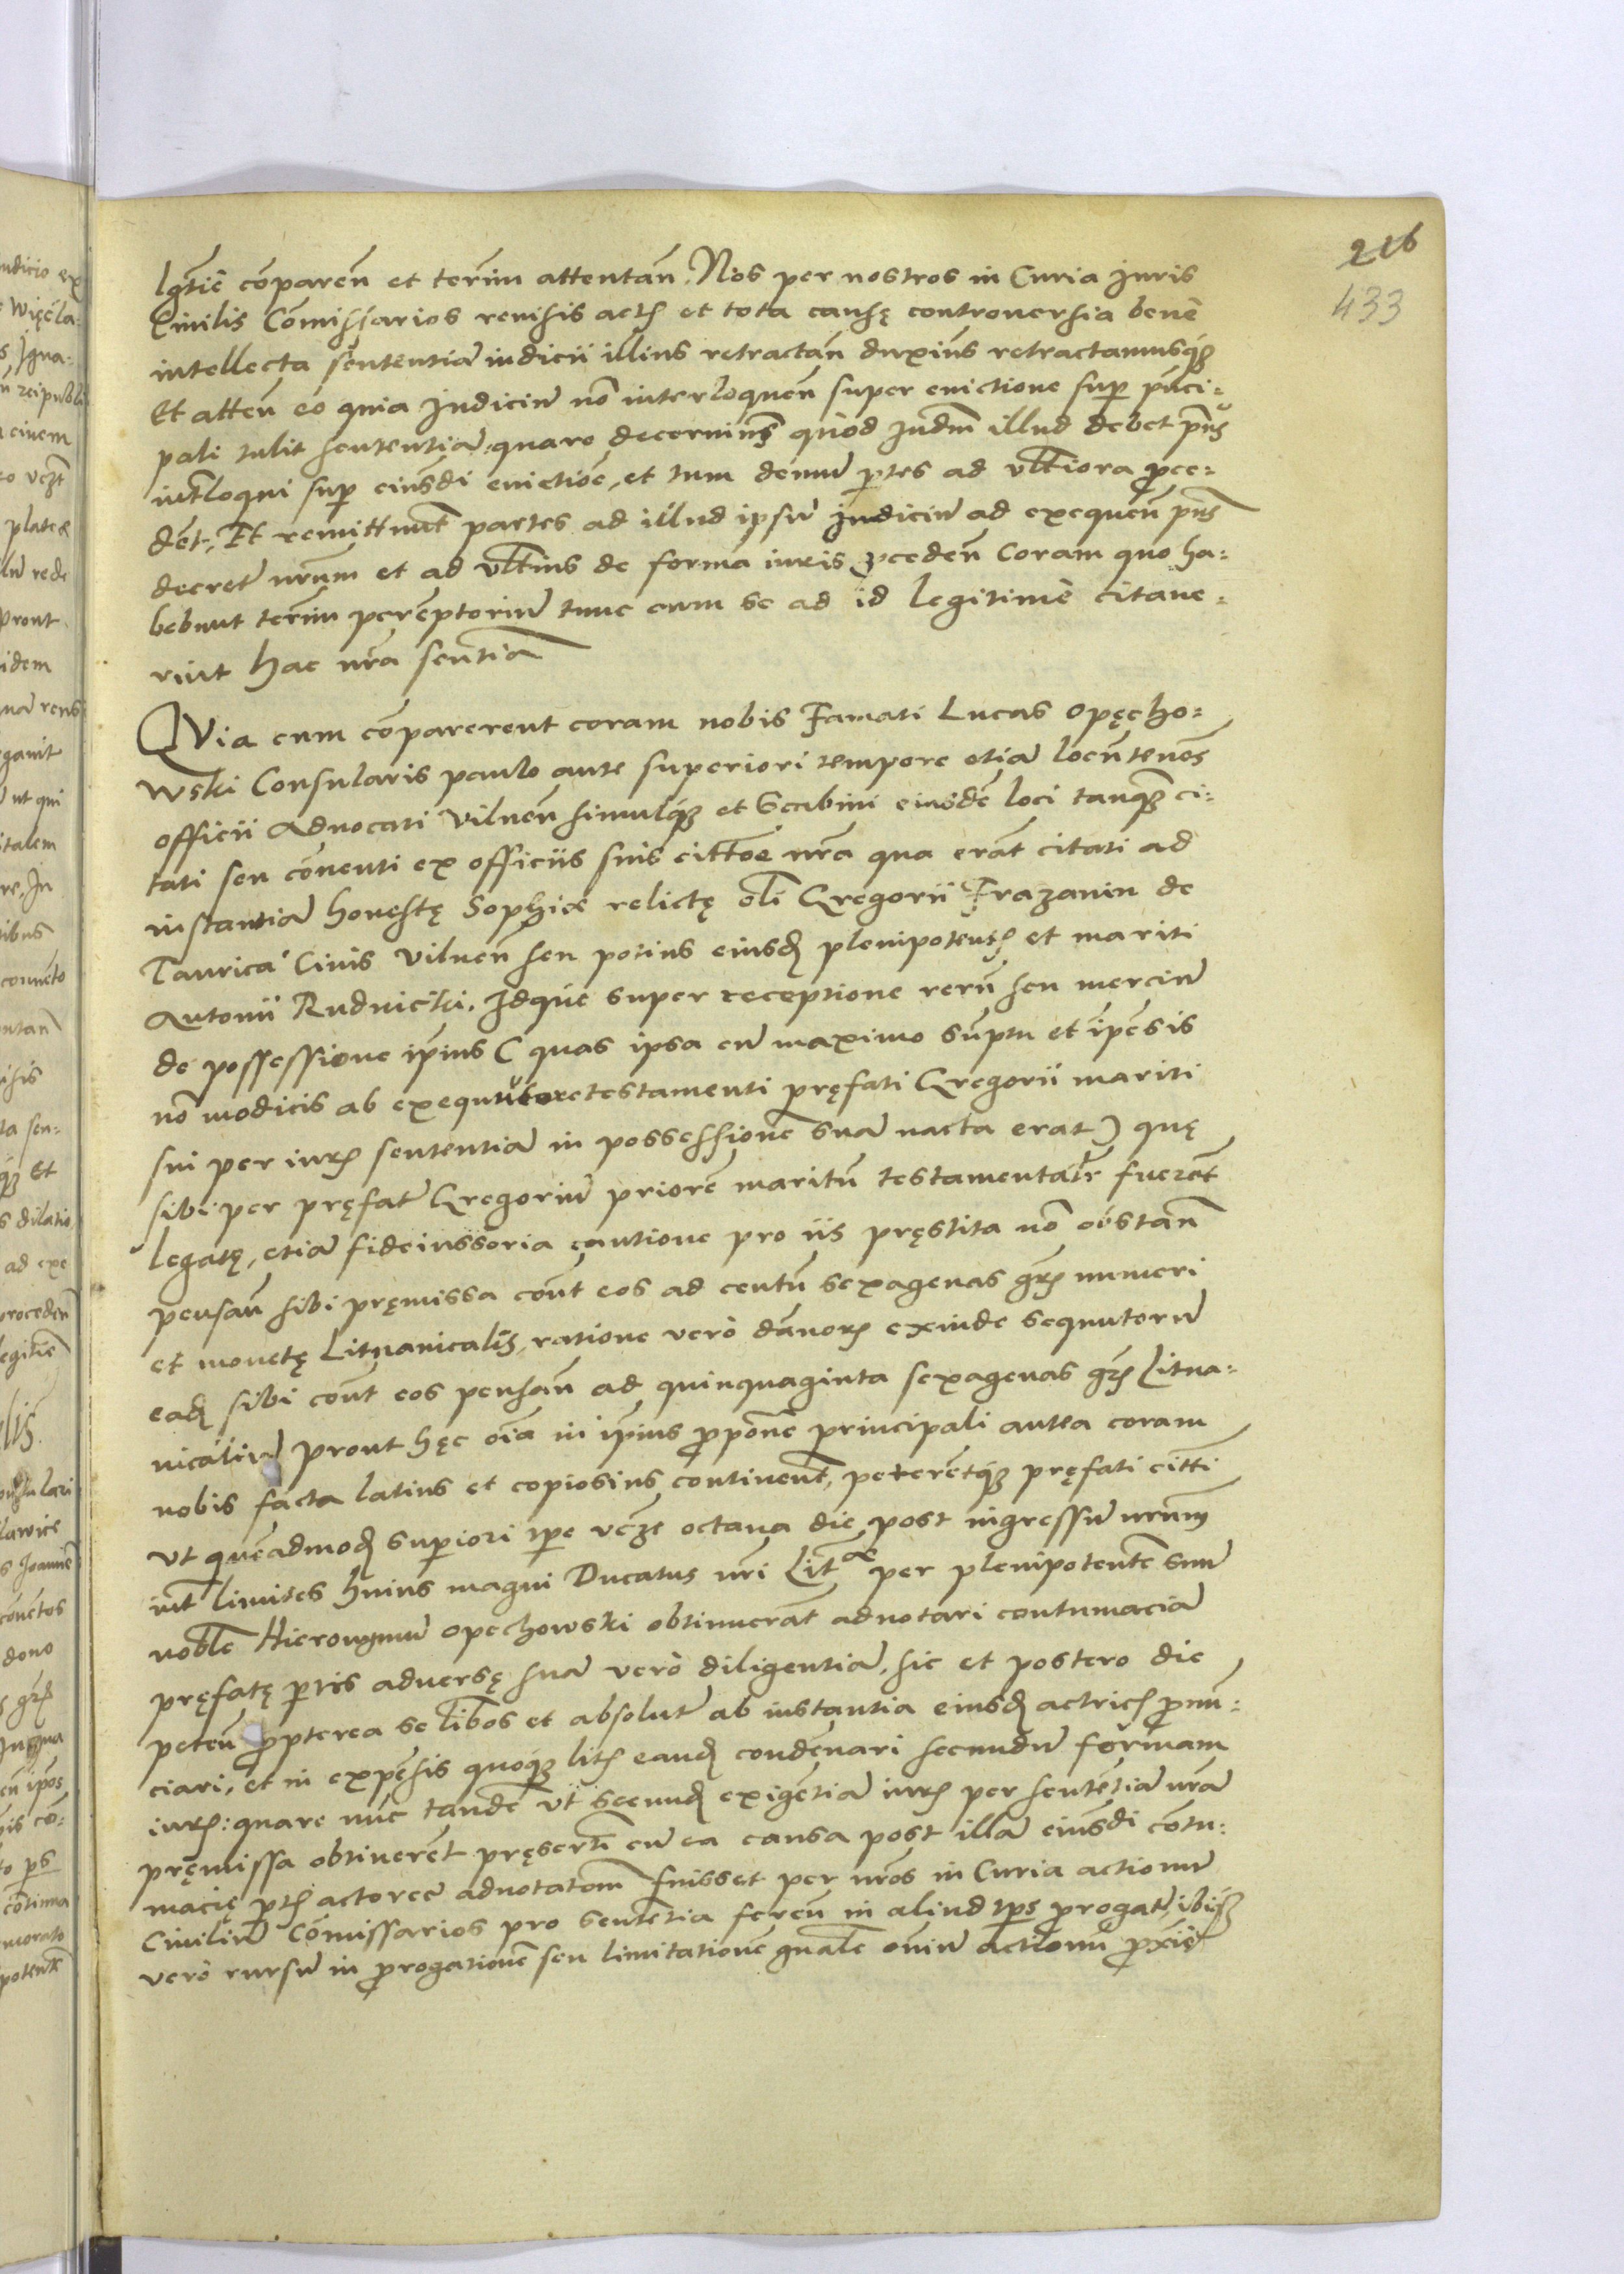 216
433
lgitiē cōparen̄ et termin̄ attentan̄. Nos per nostros in Curia Juris
Ciuilis Comissarios reuisis actis et tota causę controuersia bene
intellecta sententiā iudicii illius retractan̄ duximus retractamusq̃
Et atten̄ eo quia Judiciū nō interloquen̄ super euictione sup prīnci-
pali tulit sententiā, quare decernim̄s quòd Judm̄ illud debet prius
intloqui sup eiusdi euictiōe, et tum demū ptes ad vlt̄iora proce-
dent, Et remittunt̄ partes ad illud ipsū iudiciū ad exequen̄ pns
decretū nrūm et ad vlt̄ius de forma iuris proceden̄ Coram quo ha-
bebunt termin̄ perēptoriū tunc cum se ad id legitimè citaue-
rint hac nrā sentīa
QVia cum cōparerent coram nobis Famati Lucas Opęcho-
wski Consularis paulo ante superiori tempore etiā locūtenēs
officii Aduocati Vilnen̄ simulq̃ et Scabini eiusdē loci tanq̃ ci-
tati seu cōuenti ex officiis suis cittōe nrā qua erāt citati ad
instantiā honestę Sophiæ relictę oli Gregorii Frazanin de
Taurica Ciuis Vilnen̄ seu potius eiusd plenipotentis et mariti
Antonii Rudnicki. Idque super receptione rerū seu merciū
de possessione ipīus ( quas ipsa cū maximo sūptu et īpēsis
nō modicis ab exequutore testamenti pręfati Gregorii mariti
sui per iuris sententiā in possessionē suā nacta erat ) quę
sibi per pręfatū Gregoriū priorē maritū testamentar̄ fuerēt
legatę, etiā fideiussoria cautione pro iis pręstita nō obstan̄
pensan̄ sibi pręmissa cont̄ eos ad centū sexagenas gros numeri
et monetę Lituanicalis, ratione verò dānorū exinde sequutorū
ead sibi cont̄ eos pensan̄ ad quinquaginta sexagenas gros Litua-
nicaliū prout hęc oīa in ipīus pponē principali antea coram
nobis facta latius et copiosius continent̄, peterētq̃ pręfati citti
Vt quēadmod superiori tpe vēze octaua die post ingressū nrūm
int̄ limites huius magni Ducatus nri Lit̄æ per plenipotentē suū
noblē Hieronymū Opechowski obtinuerāt adnotari contumaciā
pręfatę ptis aduersę suā verò diligentiā, sic et postero die
peten̄ propterea se libōs et absolutū ab instantia eiusd actricis pronū-
ciari, et in expēsis quoq̃ litis eand condēnari secundū formam
iuris: quare nūc tandē vt secund exigētiā iuris per sentētiā nrā
pręmissa obtinerēt pręsertī cū ea causa post illā eiusdi contu-
macię ptis actoreæ adnotatōm fuisset per nros in Curia actionū
Ciuiliū Cōmissarios pro sentētia feren̄ in aliud tps progat̄, ibiq̃
verò rursū in progationē seu limitationē gnalē oniū actionū proxiē